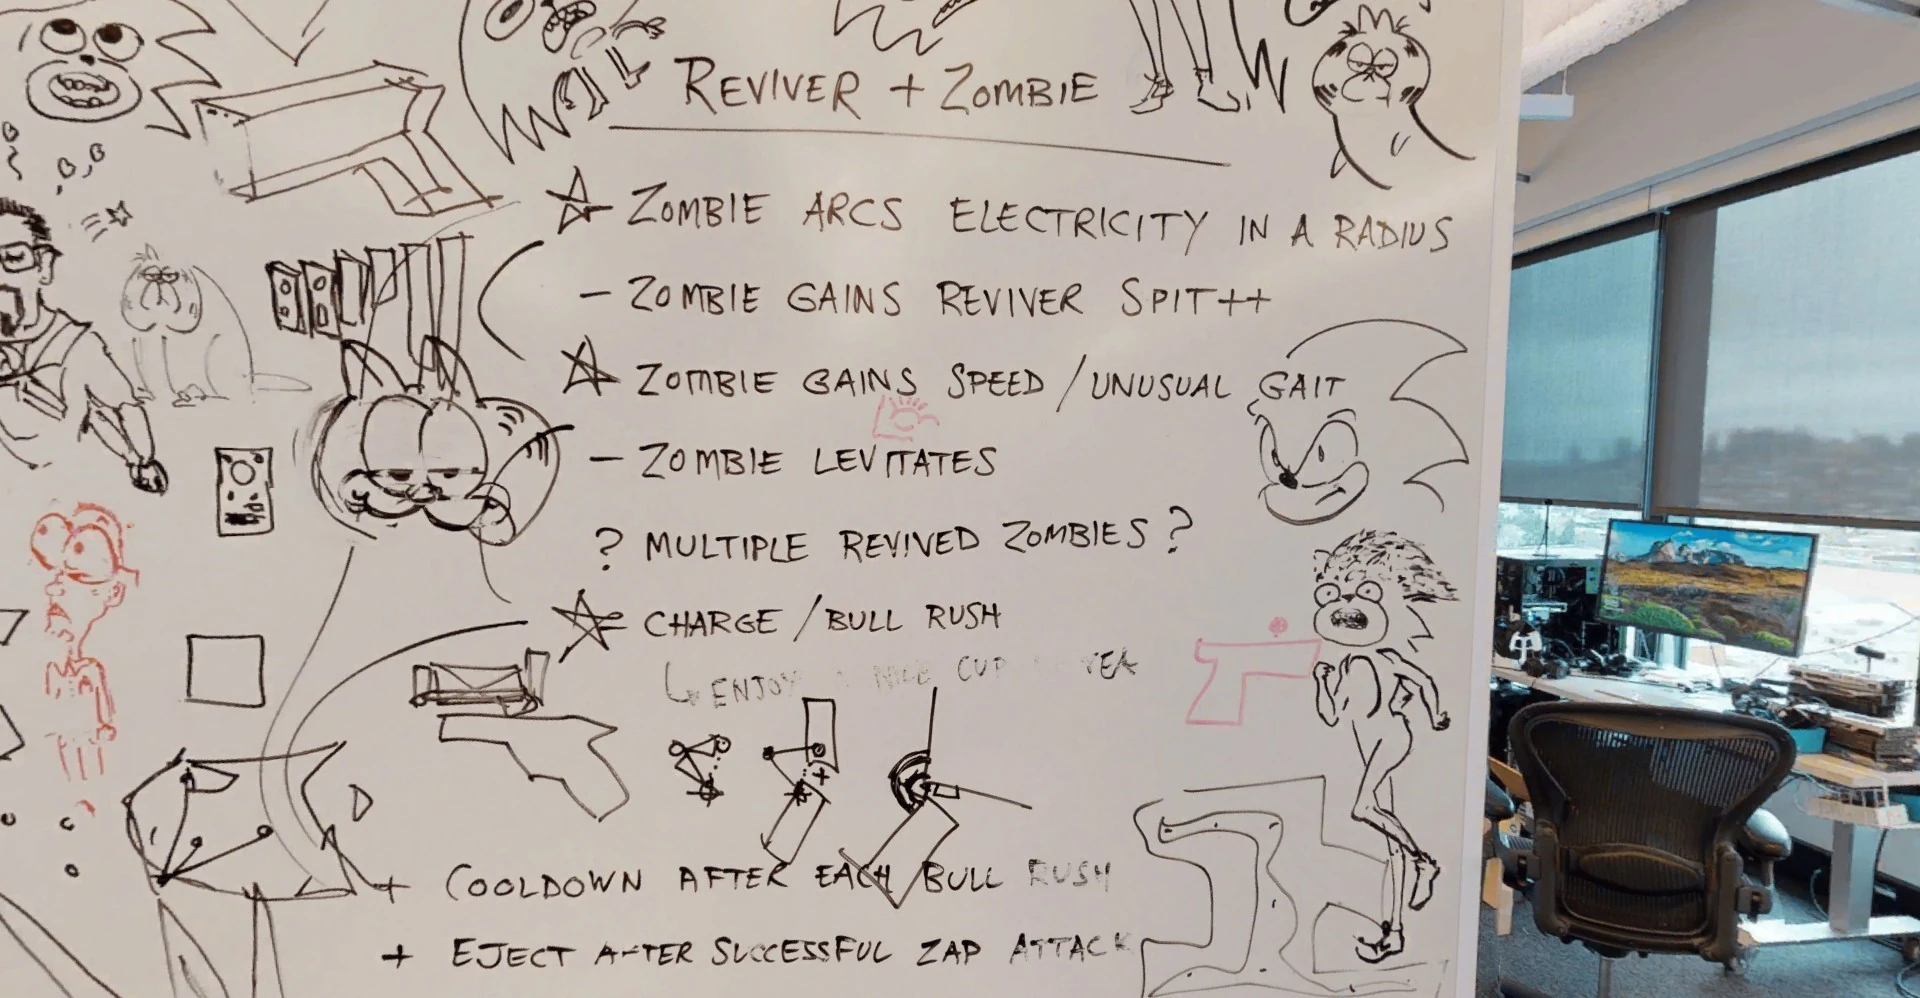 REVIVER + ZOMBIE
☆ ZOMBIE ARCS ELECTRICITY IN A RADIUS
— ZOMBIE GAINS REVIVER SPIT++
☆ ZOMBIE GAINS SPEED / UNUSUAL GAIT
— ZOMBIE LEVITATES
? MULTIPLE REVIVED ZOMBIES?
☆ CHARGE / BULL RUSH
↳ ENJOY A NICE CUP TEA
+ COOLDOWN AFTER EACH BULL RUSH
+ EJECT AFTER SUCCESSFUL ZAP ATTACK